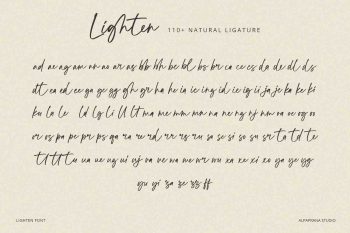 Lighten 110+ NATURAL LIGATURE
ad ae ag am an ao ar as bb bh be bl bs br ca ce cs da de dl ds
dt ea ed ee ga ge gg gh gr ha he ia ie ing id ie ig ii ja je ka ke ki
ku la le ld lg li ll lt ma me mm mn na ne ng nj nm oa oe og oo
or os pa pe pr ps qa ra re rd rr rs ru sa se si so su sr ta td te
tl tt tu ua ue ug ui uj va ve wa we wr wu xa xe xi xo ya ye yg
yu yi za se zz ff
LIGHTEN FONT
ALPAPRANA STUDIO